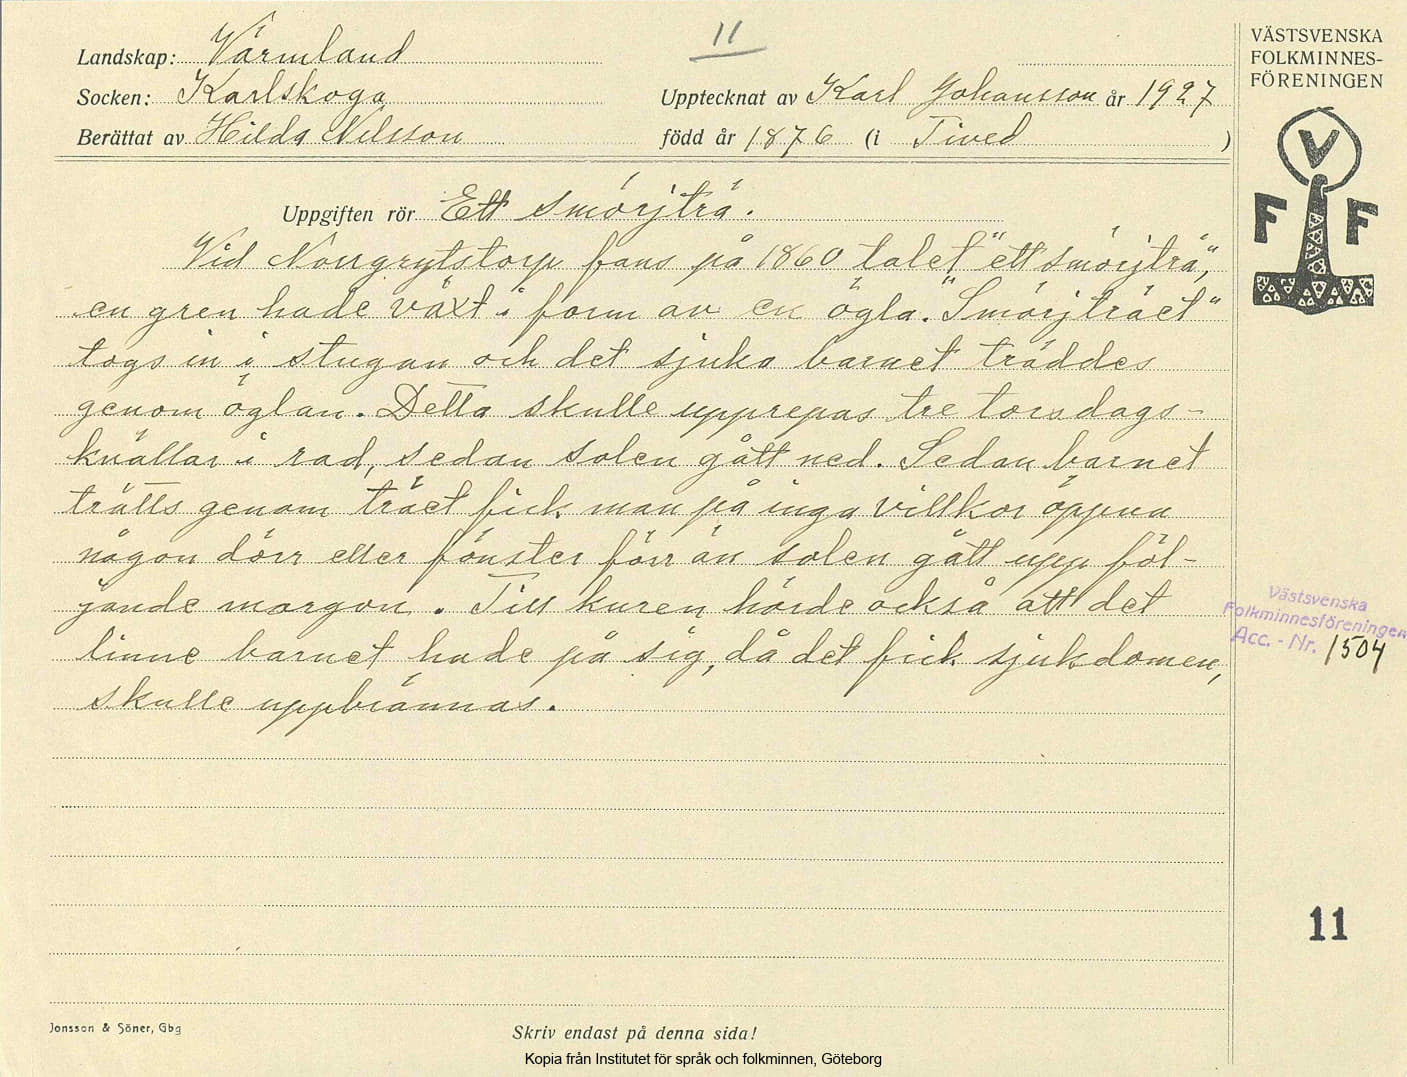 11
Landskap: Värmland
Socken: Karlskoga
Upptecknat av Karl Johansson år 1927
Berättat av Hilda Nilsson
född år 1876 (i Tived )
VÄSTSVENSKA
FOLKMINNES-
FÖRENINGEN
V
F F
Uppgiften rör Ett smörjträ.
Vid Norrgrytstorp fans på 1860 talet "ett smörjträ",
en gren hade växt i form av en ögla. "Smörjträet"
togs in i stugan och det sjuka barnet träddes
genom öglan. Detta skulle upprepas tre torsdags-
kvällar i rad, sedan solen gått ned. Sedan barnet
trätts genom träet fick man på inga villkor öppna
någon dörr eller fönster förr än solen gått upp föl-
jande morgon. Till kuren hörde också att det
linne barnet hade på sig, då det fick sjukdomen,
skulle uppbrännas.
Västsvenska
Folkminnesföreningen
Acc. - Nr. 1504
11
Jonsson & Söner, Gbg
Skriv endast på denna sida!
Kopia från Institutet för språk och folkminnen, Göteborg